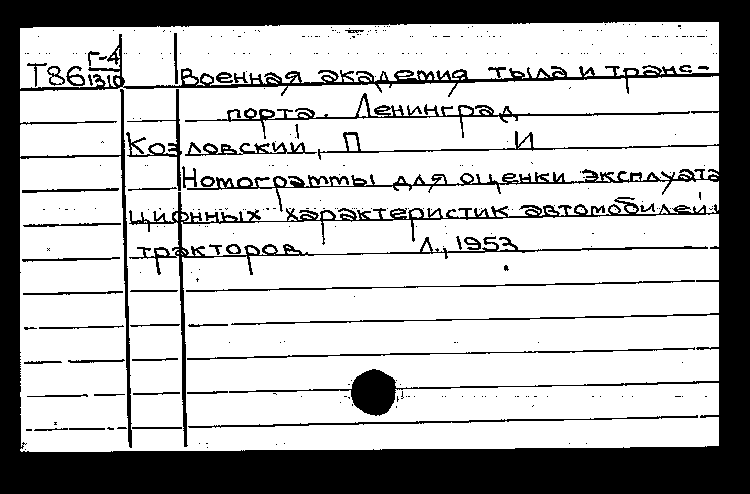 Т86 Г-4/1310 Военная академия тыла и транс-
порта. Ленинград
Козловский, П И
Номограммы для оценки эксплуата
ционных характеристик автомобилей и
тракторов. Л., 1953